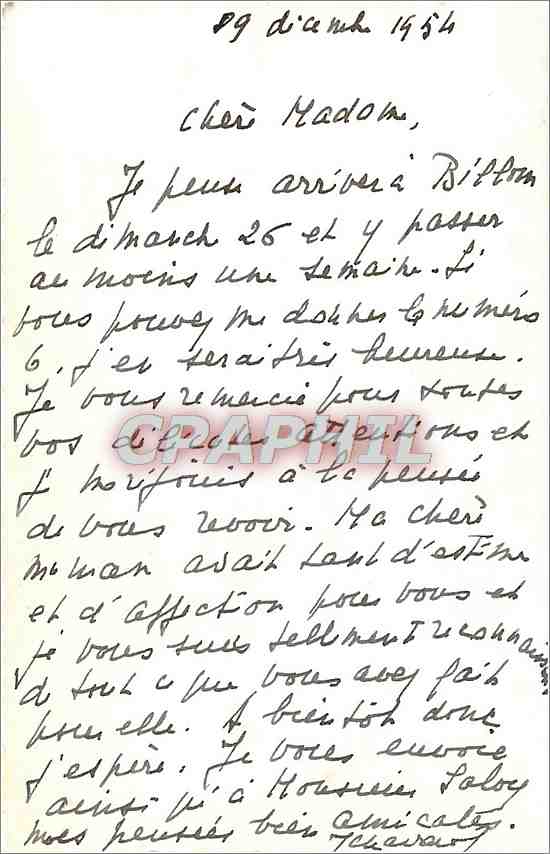 19 décembre 1954
Chère Madame,
Je pense arriver à Billom
le dimanche 26 et y passer
au moins une semaine. Si
vous pouvez me donner le numéro
6, j'en serai très heureuse.
Je vous remercie pour toutes
vos délicates attentions et
CPAPHIL
je me réjouis à la pensée
de vous revoir. Ma chère
maman avait tant d'estime
et d'affection pour vous et
je vous suis tellement reconnaissante
de tout ce que vous avez fait
pour elle. A bientôt donc
j'espère. Je vous envoie
ainsi qu'à Monsieur
mes pensées bien amicales.